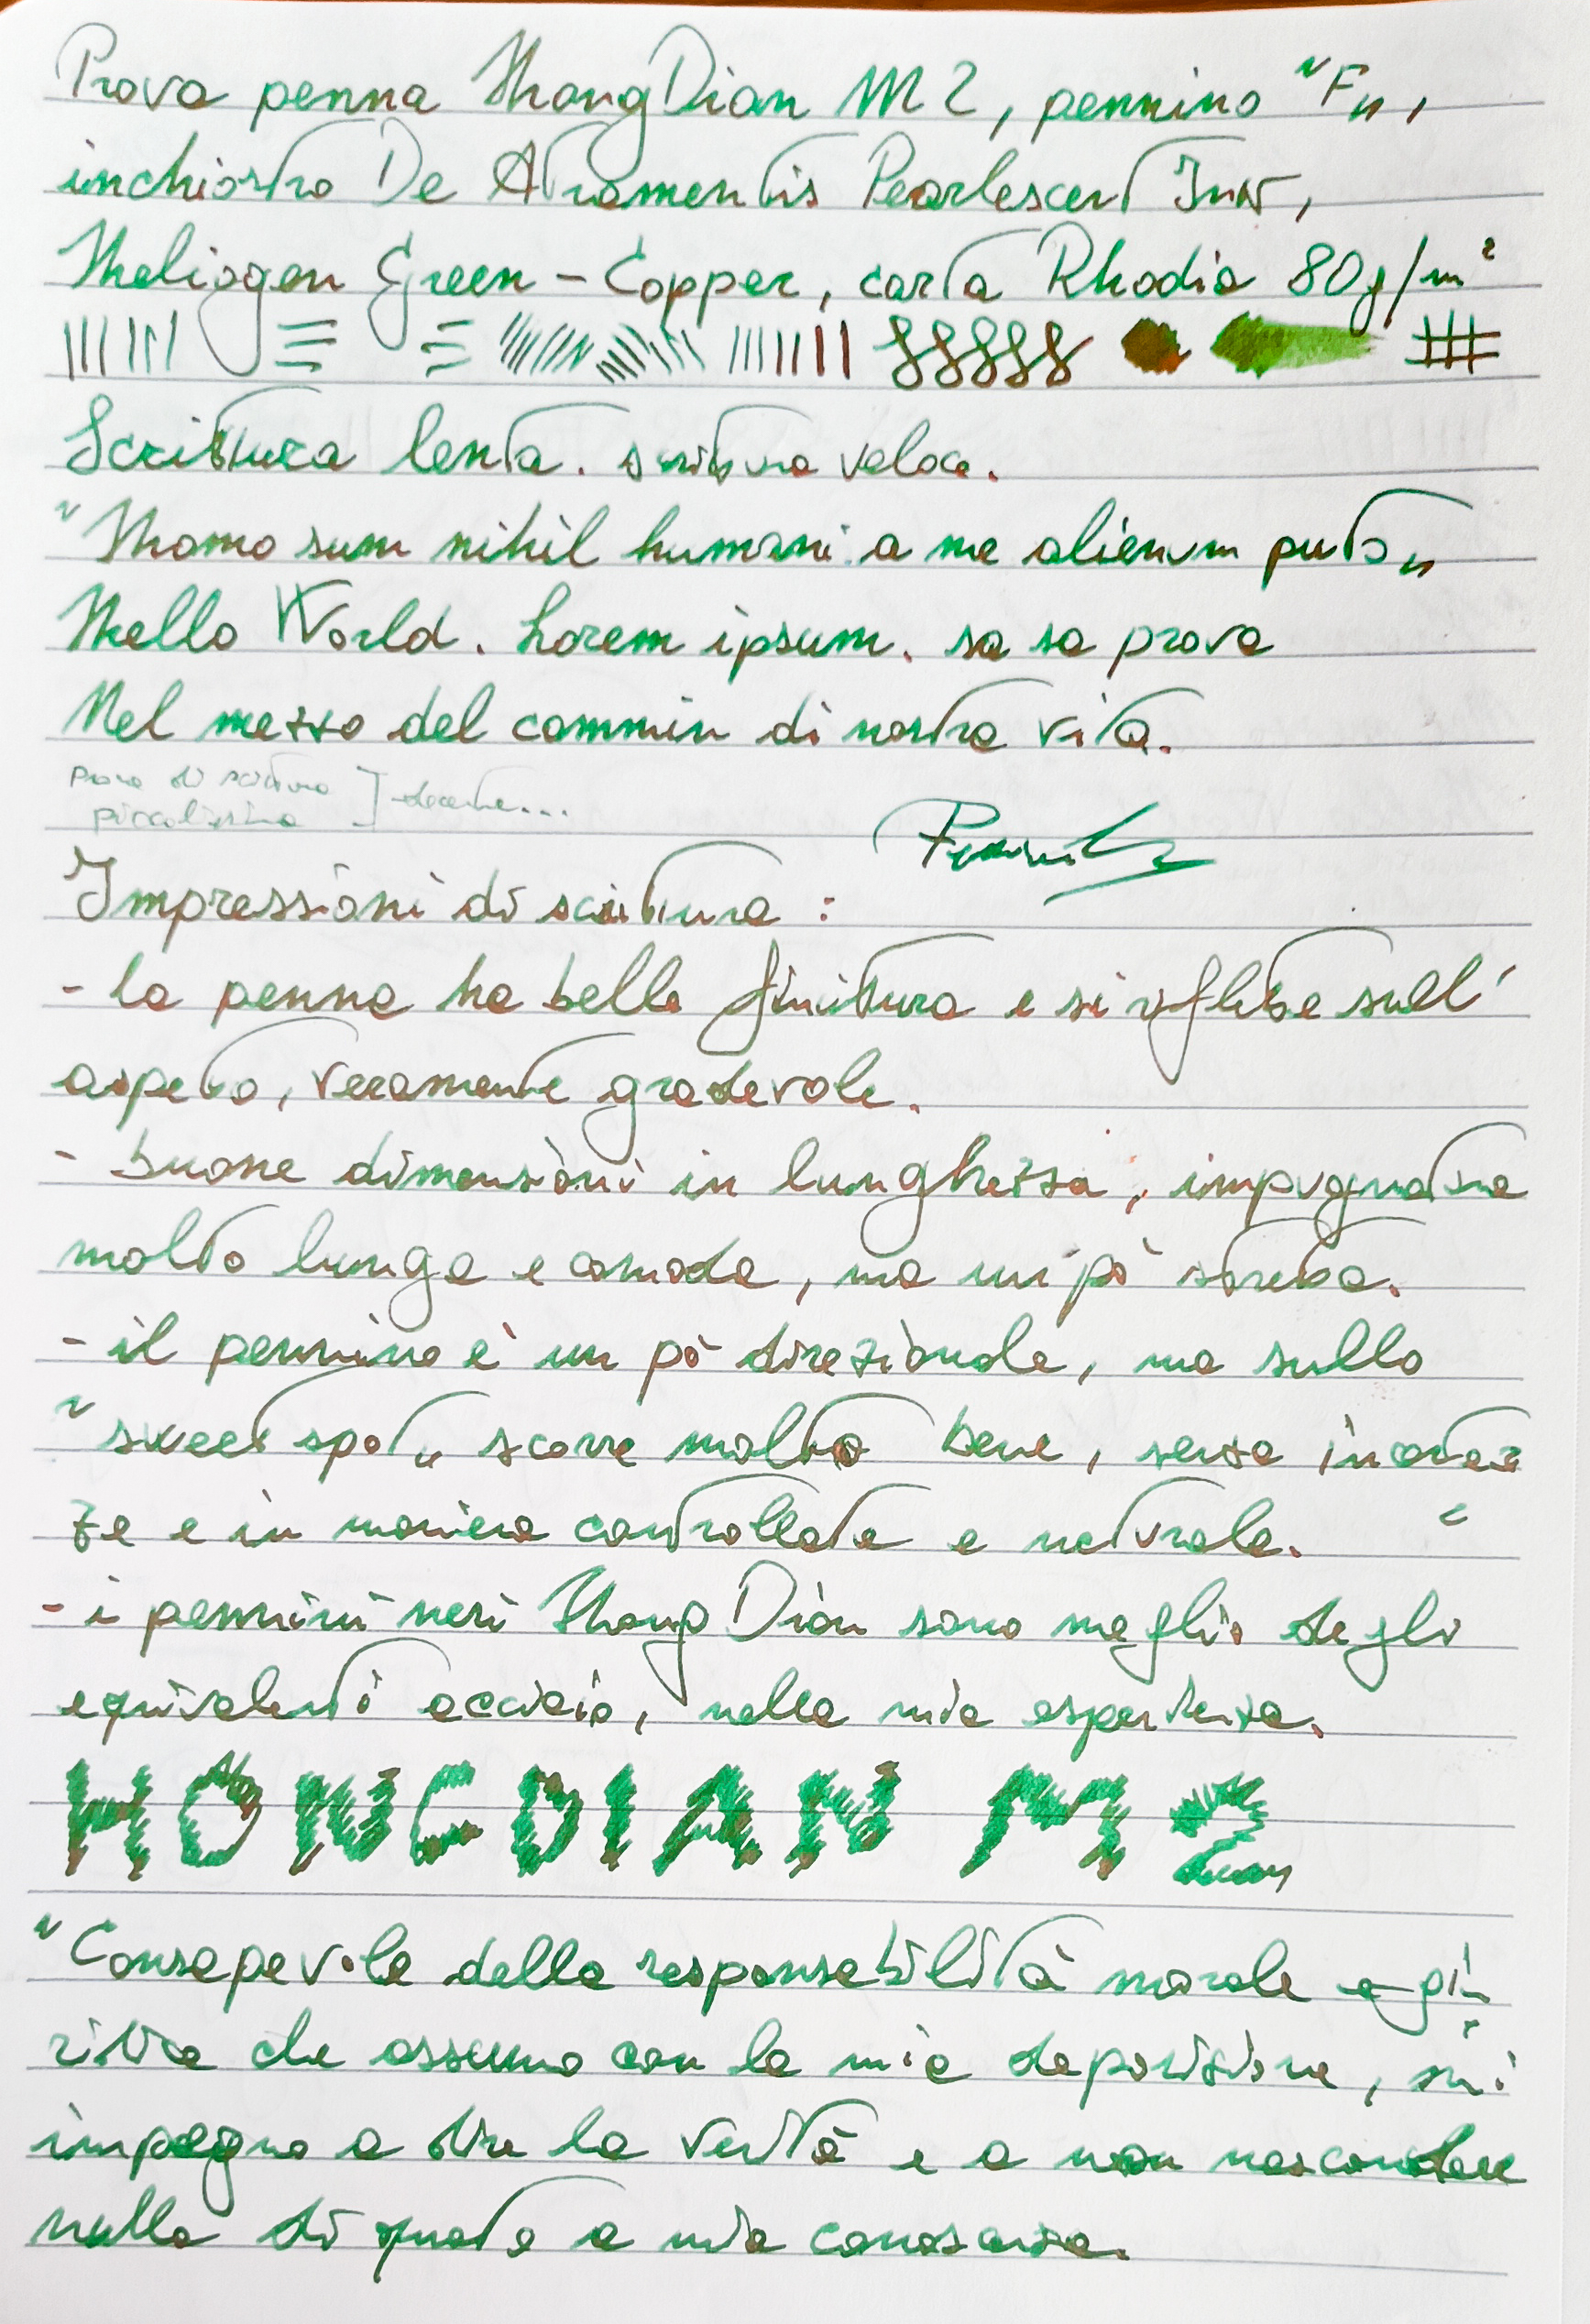 Prova penna HongDian M2, pennino "F",
inchiostro De Atramentis Pearlescent Ink,
Heliogen Green - Copper, carta Rhodia 80g/m²
Scrittura lenta. scrittura veloce.
"Homo sum nihil humani a me alienum puto"
Hello World. Lorem ipsum. sa sa prova
Nel mezzo del cammin di nostra vita.
prova di scrittura ] decente...
piccolissima
Impressioni di scrittura :
- la penna ha bella finitura e si riflette sull'
aspetto, veramente gradevole.
- buone dimensioni in lunghezza, impugnatura
molto lunga e comoda, ma un pò stretta.
- il pennino è un pò direzionale, ma sullo
"sweet spot" scorre molto bene, senza incertez
ze e in maniera controllata e naturale.
- i pennini neri HongDian sono meglio degli
equivalenti acciaio, nella mia esperienza.
HONGDIAN M2
"Consapevole della responsabilità morale e giu
ridica che assumo con la mia deposizione, mi
impegno a dire la verità e a non nascondere
nulla di quanto a mia conoscenza.